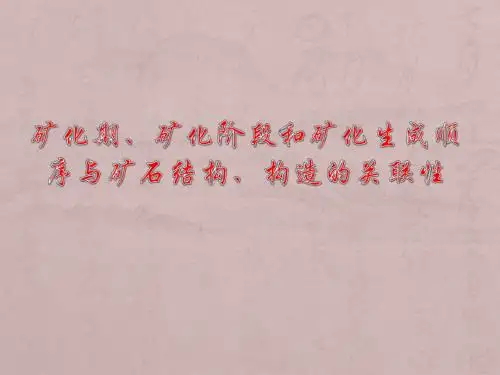 矿化期、矿化阶段和矿化生成顺
序与矿石结构、构造的关联性